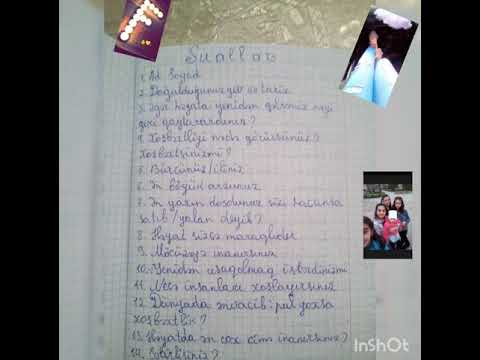 Suallar
1. Ad Soyad
2. Doğulduğunuz yer və tarix
3. Əgər həyata yenidən gəlsəniz nəyi
geri qaytarardınız?
4. Xoşbəxtliyi nədə görürsünüz?
Xoşbəxtsinizmi?
5. Bürcünüz/
6. Ən böyük arzunuz
7. Ən yaxın dostunuz sizi
satıb/yalan deyib?
8. Həyat sizcə maraqlıdır
9. Möcüzəyə inanırsınız
10. Yenidən uşaqolmaq istərdinizmi
11. Necə insanları xoşlayırsınız
12. Dünyada ən vacib: pul yoxsa
xoşbəxtlik?
13. Həyatda ən çox kimə inanırsınız?
14.
InShOt